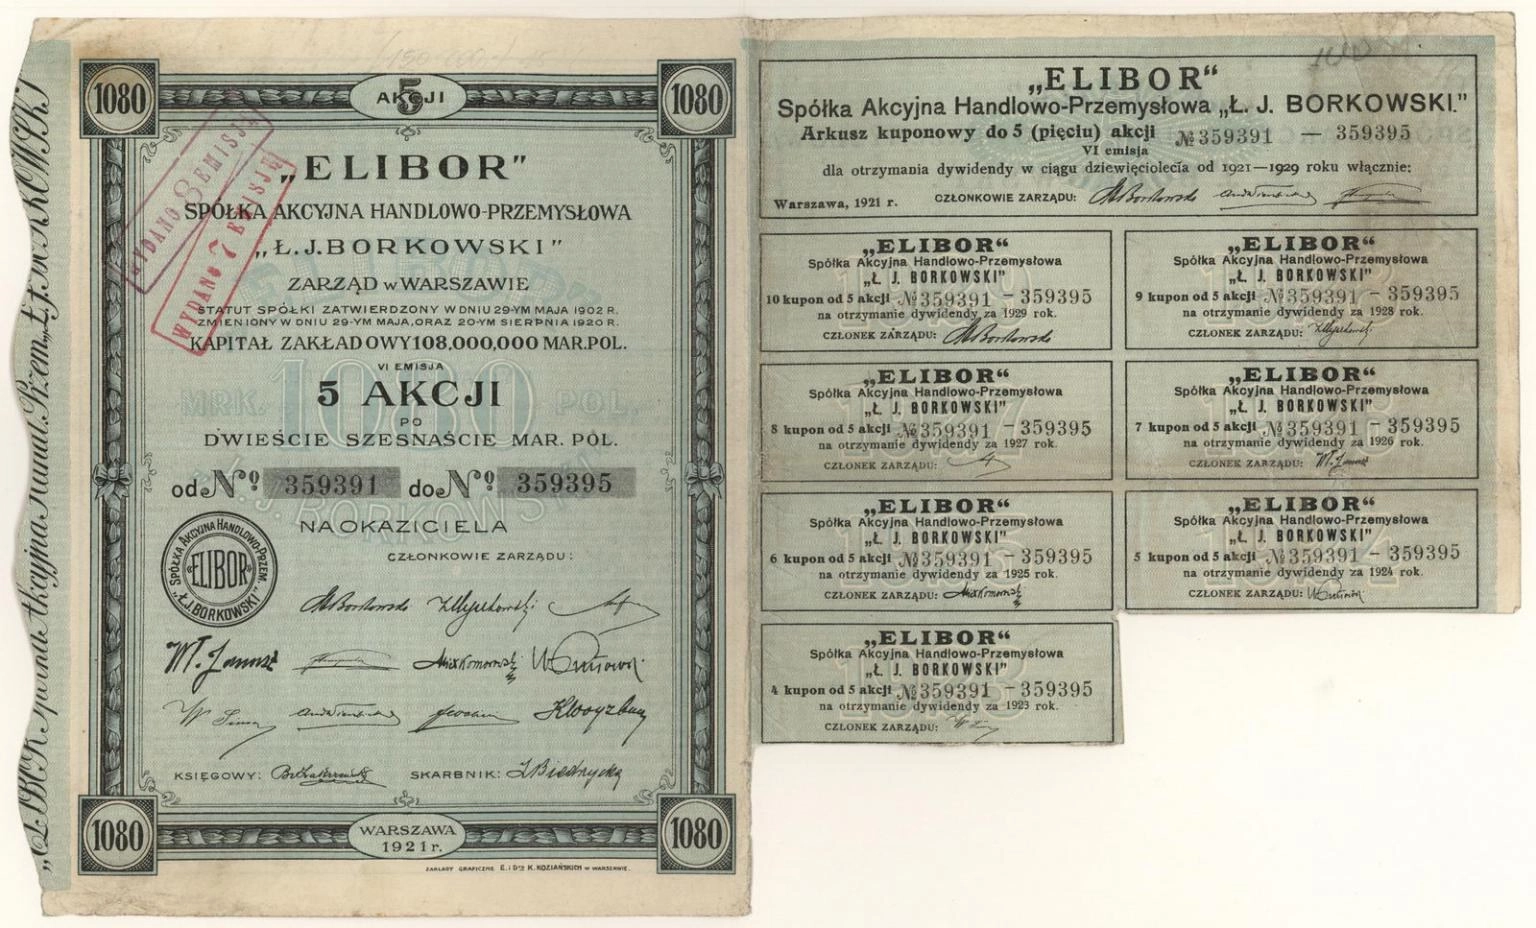 1080
5
AKCJI
1080
WYDANO 8 EMISJĘ
WYDANO 7 EMISJĘ
„ELIBOR”
SPÓŁKA AKCYJNA HANDLOWO-PRZEMYSŁOWA
„Ł.J.BORKOWSKI”
ZARZĄD w WARSZAWIE
STATUT SPÓŁKI ZATWIERDZONY W DNIU 29-YM MAJA 1902 R.
ZMIENIONY W DNIU 29-YM MAJA, ORAZ 20-YM SIERPNIA 1920 R.
KAPITAŁ ZAKŁADOWY 108,000,000 MAR.POL.
VI EMISJA
5 AKCJI
MRK. 1080 POL.
PO
DWIEŚCIE SZESNAŚCIE MAR. POL.
od № 359391 do № 359395
NA OKAZICIELA
SPÓŁKA AKCYJNA HANDLOWO-PRZEM.
«ELIBOR»
„Ł.J.BORKOWSKI”
CZŁONKOWIE ZARZĄDU:
KSIĘGOWY:
SKARBNIK:
1080
WARSZAWA
1921 r.
1080
ZAKŁADY GRAFICZNE E. i Dra K. KOZIAŃSKICH w WARSZAWIE.
„ELIBOR“
Spółka Akcyjna Handlowo-Przemysłowa „Ł. J. BORKOWSKI.”
Arkusz kuponowy do 5 (pięciu) akcji № 359391 — 359395
VI emisja
dla otrzymania dywidendy w ciągu dziewięciolecia od 1921—1929 roku włącznie:
Warszawa, 1921 r. CZŁONKOWIE ZARZĄDU:
„ELIBOR“
Spółka Akcyjna Handlowo-Przemysłowa
„Ł. J. BORKOWSKI”
10 kupon od 5 akcji № 359391 — 359395
na otrzymanie dywidendy za 1929 rok.
CZŁONEK ZARZĄDU:
„ELIBOR“
Spółka Akcyjna Handlowo-Przemysłowa
„Ł. J. BORKOWSKI”
9 kupon od 5 akcji № 359391 — 359395
na otrzymanie dywidendy za 1928 rok.
CZŁONEK ZARZĄDU:
„ELIBOR“
Spółka Akcyjna Handlowo-Przemysłowa
„Ł. J. BORKOWSKI”
8 kupon od 5 akcji № 359391 — 359395
na otrzymanie dywidendy za 1927 rok.
CZŁONEK ZARZĄDU:
„ELIBOR“
Spółka Akcyjna Handlowo-Przemysłowa
„Ł. J. BORKOWSKI”
7 kupon od 5 akcji № 359391 — 359395
na otrzymanie dywidendy za 1926 rok.
CZŁONEK ZARZĄDU:
„ELIBOR“
Spółka Akcyjna Handlowo-Przemysłowa
„Ł. J. BORKOWSKI”
6 kupon od 5 akcji № 359391 — 359395
na otrzymanie dywidendy za 1925 rok.
CZŁONEK ZARZĄDU:
„ELIBOR“
Spółka Akcyjna Handlowo-Przemysłowa
„Ł. J. BORKOWSKI”
5 kupon od 5 akcji № 359391 — 359395
na otrzymanie dywidendy za 1924 rok.
CZŁONEK ZARZĄDU:
„ELIBOR“
Spółka Akcyjna Handlowo-Przemysłowa
„Ł. J. BORKOWSKI”
4 kupon od 5 akcji № 359391 — 359395
na otrzymanie dywidendy za 1923 rok.
CZŁONEK ZARZĄDU: